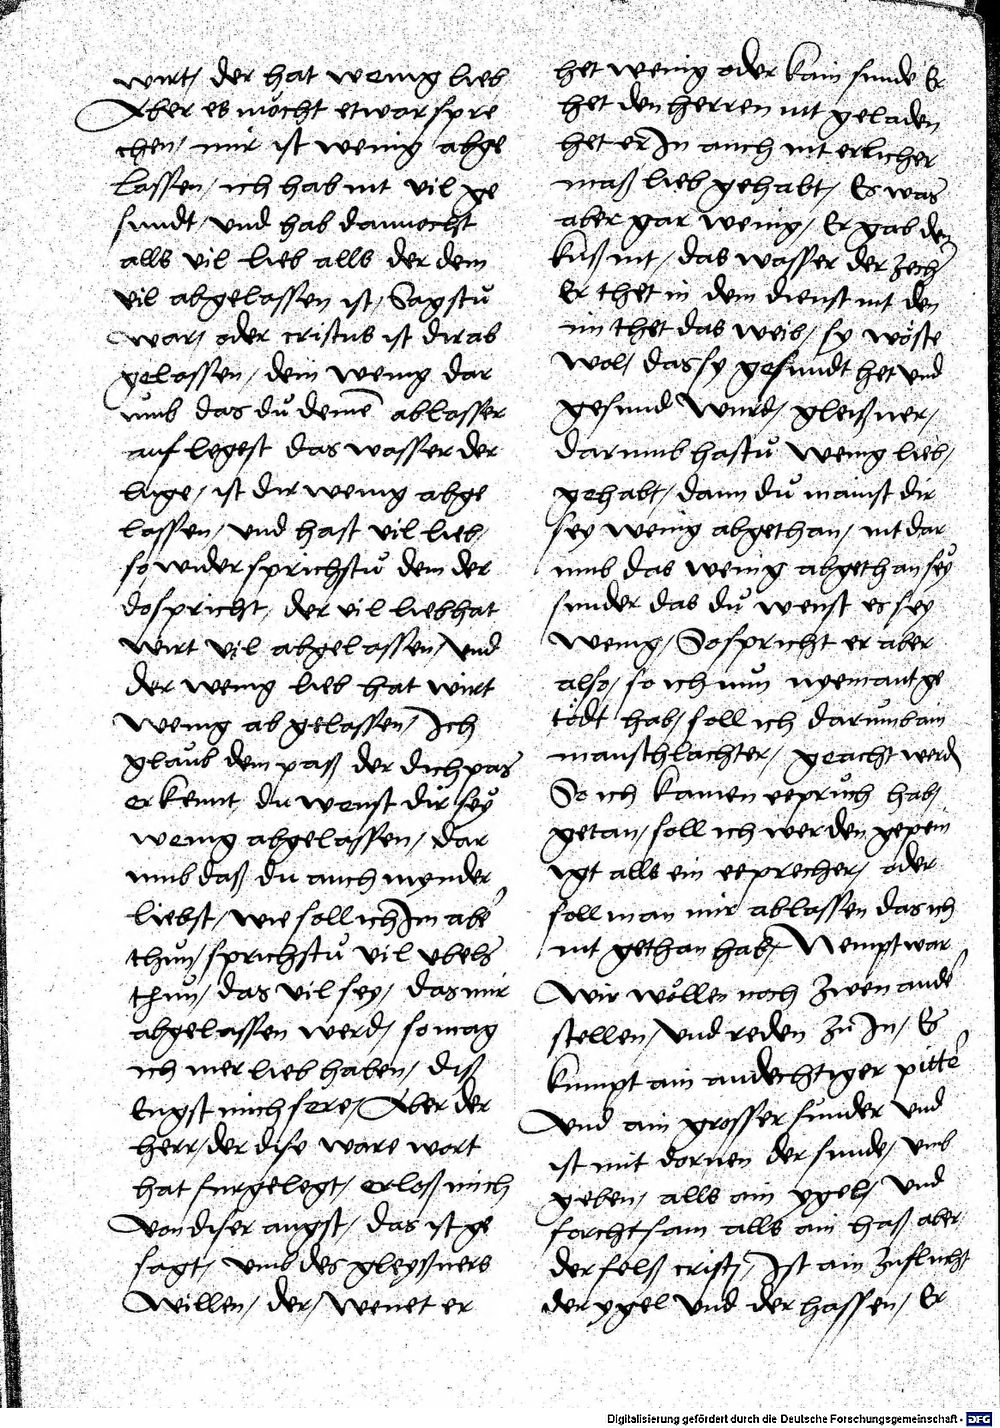 wirt / der hat wenig lieb
Aber es möcht etwar spre
chen / mir ist wenig abge
lassen / ich hab nit vil ge
sundt / und hab dannocht
alls vil lieb alls der dem
vil abgelassen ist / Sagstu
war / oder cristus ist dir ab
gelassen / dein wenig dar
umb das du deinē ablasser
auf legest das wasser der
luge / ist dir wenig abge
lassen / und hast vil lieb /
so widersprichstu dem der
do spricht / der vil lieb hat
wirt vil abgelassen / und
der wenig lieb hat wirt
wenig ab gelassen / Ich
glaub dem paß der dich pas
erkennt / du wenst dir sey
wenig abgelassen / dar
umb daß du auch mynder
liebst / wie soll ich Im abe
thun / sprichstu vil ubels
thun / das vil sey / das mir
abgelassen werd / so mag
ich mer lieb haben / diß
Engst mich sere / Aber der
herr / der dise ware wort
hat furgelegt / erloß mich
von diser angst / das ist ge
sagt / umb des gleyßners
willen / der / wenet er
het wenig oder kain sunde Er
het den herren nit geladen
het er In auch nit etlicher
maß lieb gehabt / Es was
aber gar wenig / Er gab den
kuß nit / das wasser der zech
Er thet in dem dienst nit den
im thet das weib / sy wöste
wol / das sy gesundt het und
gesund wurd / gleißner /
darumb hastu wenig lieb /
gehabt / dann du mainst dir
sey wenig abgethan / nit dar
umb das wenig abgethan sey
sunder das du wenst es sey
wenig / So spricht er aber
also / so ich nun nyemant ge
tödt hab / soll ich darumb ain
manschlachter / geacht werd
So ich kainen eepruch hab /
getan / soll ich werden gepein
igt alls ein eeprecher / oder
soll man mir ablassen das ich
nit gethan hab / Nempt war
Wir wöllen noch zwen ande
stellen / und reden zu In / Es
kumpt ain andechtiger pitte
und ain grosser sunder und
ist mit dornen der sunde / umb
geben / alls ain ygel / und
forchtsam alls ain haß aber
der felß cristi / Ist ain zuflucht
der ygel und der hassen / Er
Digitalisierung gefördert durch die Deutsche Forschungsgemeinschaft - DFG